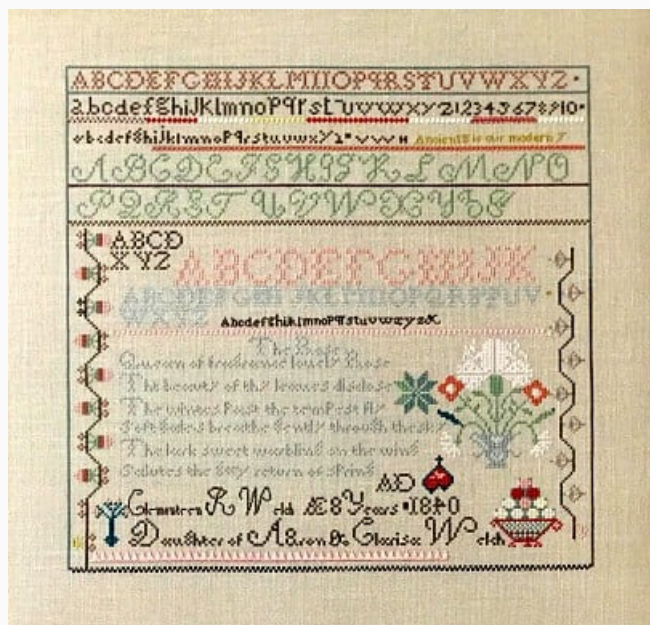 ABCDEFGHIJKLMNOPQRSTUVWXYZ
abcdefghiJKlmnoPqrstuvwxyz12345678910
abcdefghiJklmnoPqrstuvwxyz is our modern
ABCDEFGHIJKLMNO
PQRSTUVWXYZ&
ABCD
XYZ
ABCDEFGHIJK
ABCDEFGHIJKLMNOPQRSTUV
WXYZ
AbcdefghiklmnoPqrstuvwxyz&
The Rose
Queen of fragrance lovely Rose
The beauty of thy leaves disclose
The winters Past the tempest fly
Soft Gales breathe Gently through the sky
The lark sweet warbling on the wing
Salutes the Gay return of sPring
AD
R Welch Æ 8 Years 1840
Daughter of Aaron & Clarisa Welch